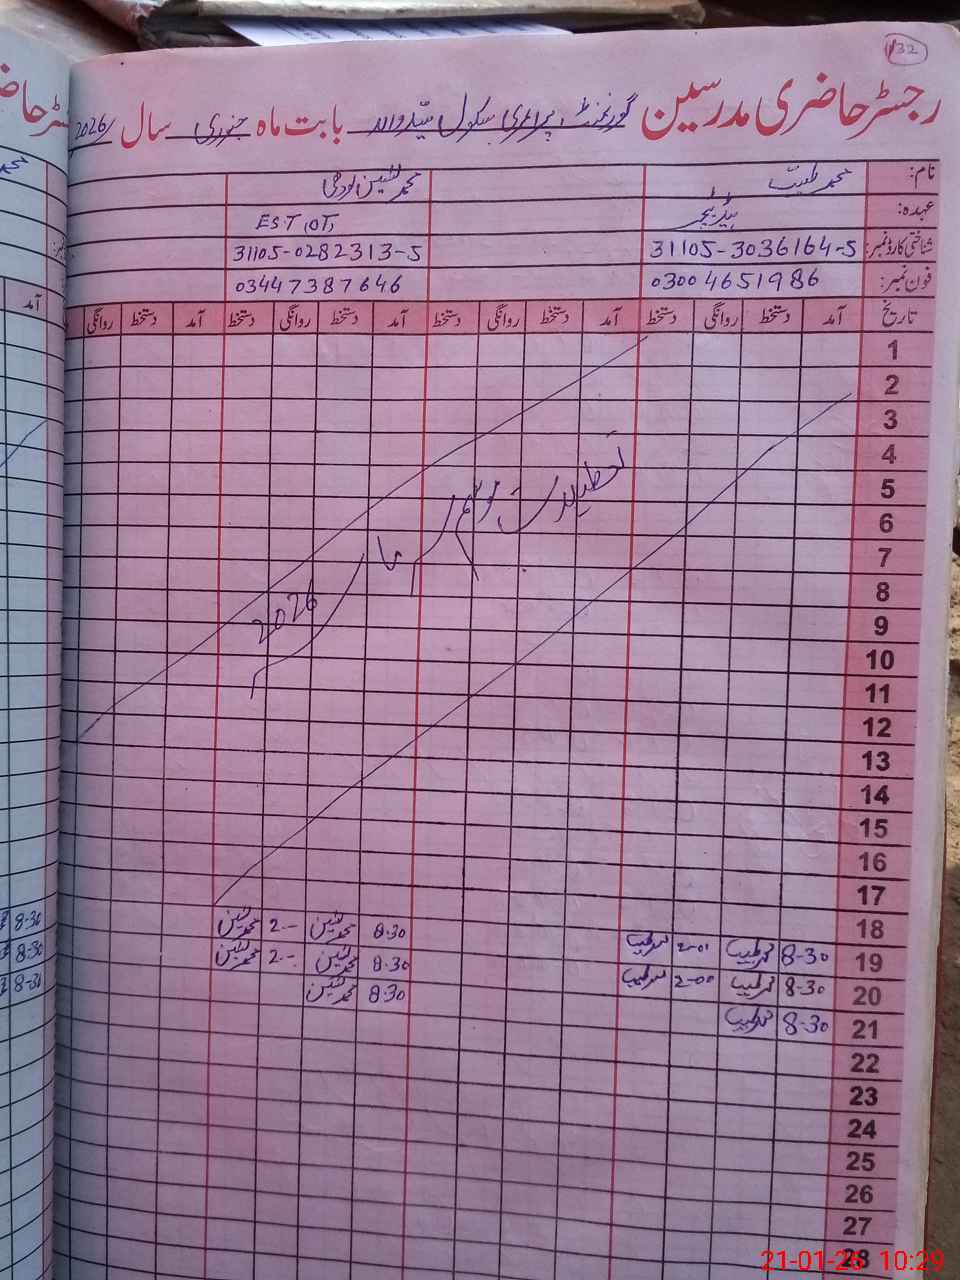 132
رجسٹر حاضری مدرسین گورنمنٹ پرائمری سکول بابت ماہ جنوری سال 2026
نام: محمد طیب محمد لودھی
عہدہ: ہیڈ ٹیچر EST(OT)
شناختی کارڈ نمبر: 31105-3036164-5 31105-0282313-5
فون نمبر: 03004651986 03447387646
تاریخ آمد دستخط روانگی دستخط آمد دستخط روانگی دستخط آمد دستخط روانگی دستخط آمد دستخط روانگی
آمد
1
2
3
4
5
6
7
8
9
10
11
12
13
14
15
16
17
تعطیلات موسم سرما
2026
18
19 8-30 محمد طیب 2-00 محمد طیب 8:30 محمد 2-- محمد 8-30
20 8-30 محمد طیب 2-00 محمد طیب 8:30 محمد 2-- محمد 8-30
21 8-30 محمد طیب 8:30 محمد 8-30
22
23
24
25
26
27
28
21-01-26 10:29